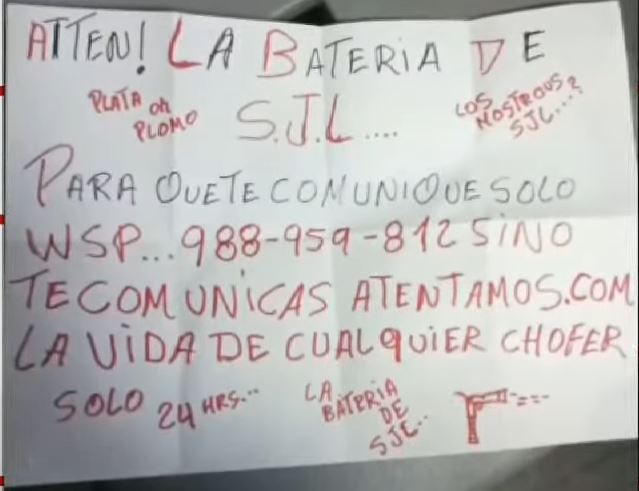 ATTEN! LA BATERIA DE
S.J.L....
PLATA OR
PLOMO
LOS
MOSTROUS
SJL...?
PARA QUE TE COMUNIQUE SOLO
WSP...988-959-812 SINO
TE COMUNICAS ATENTAMOS.COM
LA VIDA DE CUALQUIER CHOFER
SOLO 24 HRS...
LA
BATERIA
DE
SJL..